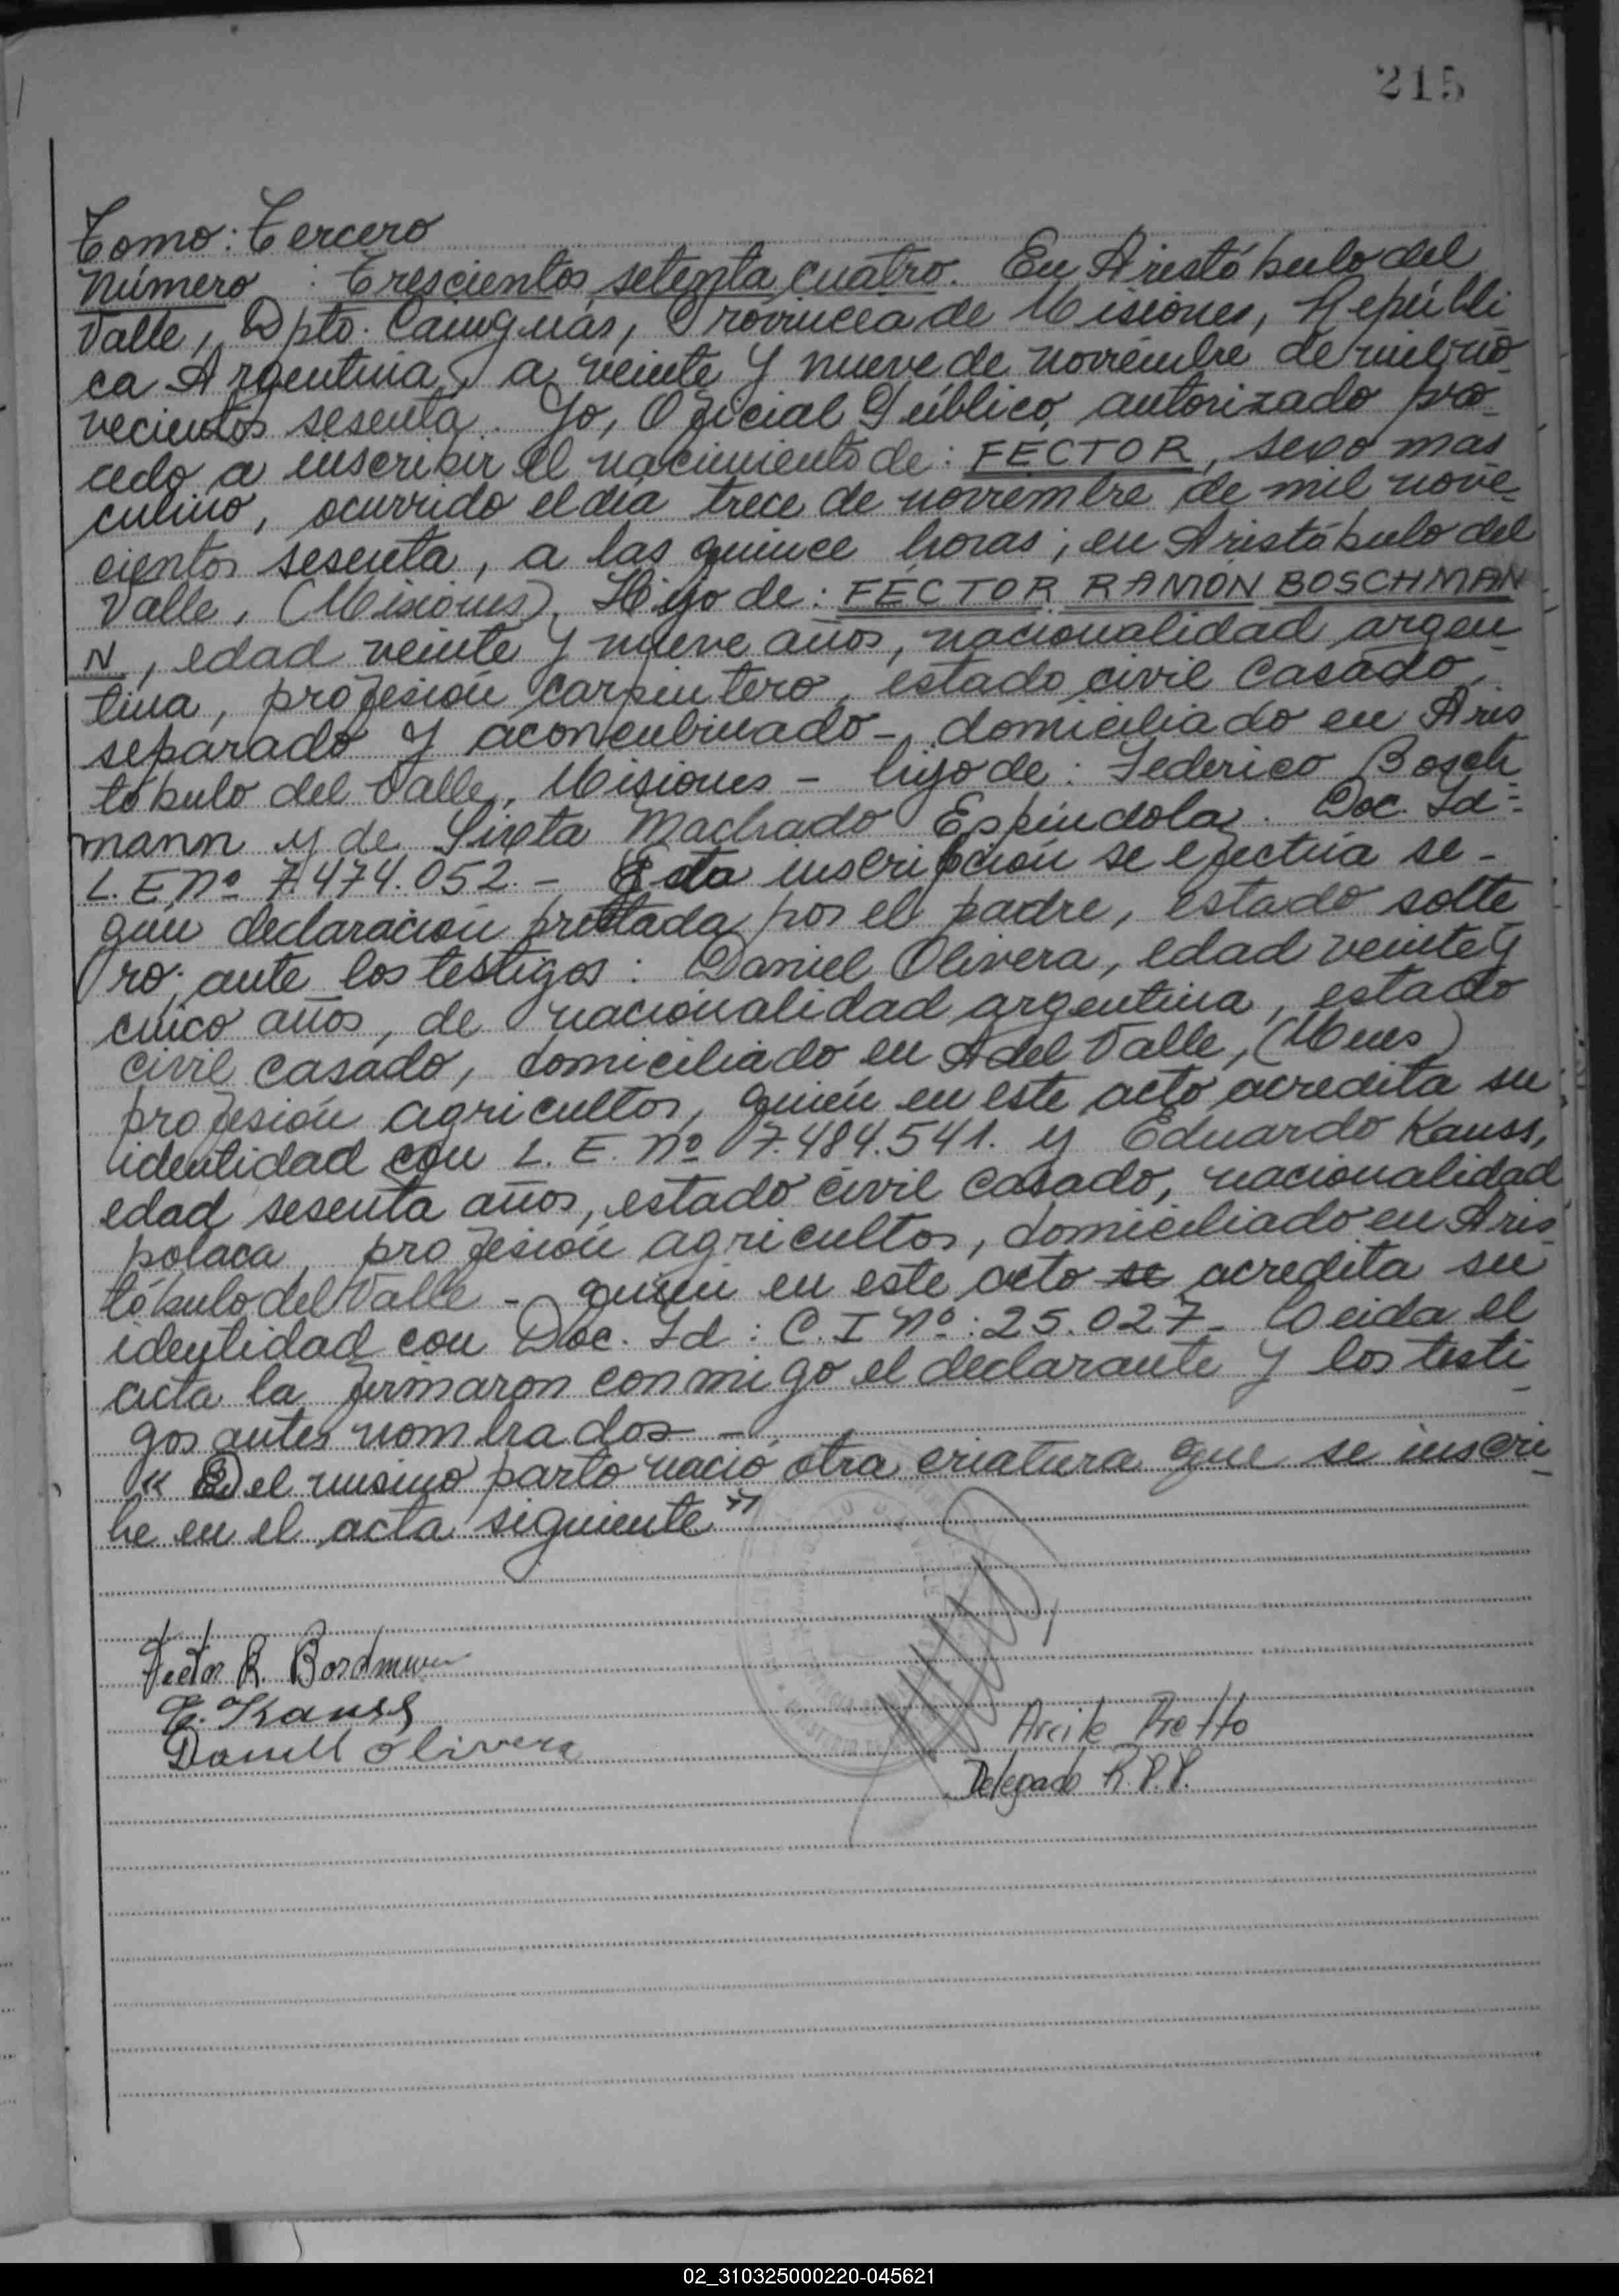 215
Tomo: Tercero
Número : Trescientos setenta cuatro. En Aristóbulo del
Valle, Dpto. Cainguás, Provincia de Misiones, Repúbli
ca Argentina, a veinte y nueve de noviembre de mil no-
vecientos sesenta. Yo, Oficial Público, autorizado pro-
cedo a inscribir el nacimiento de: FECTOR, sexo mas
culino, ocurrido el día trece de noviembre de mil nove-
cientos sesenta, a las quince horas; en Aristóbulo del
Valle, (Misiones). Hijo de: FÉCTOR RAMÓN BOSCHMAN
N, edad veinte y nueve años, nacionalidad argen-
tina, profesión carpintero, estado civil casado,
separado y aconcubinado-, domiciliado en Aris
tóbulo del Valle, Misiones - hijo de: Federico Bosch
mann y de Sixta Machado Espíndola. Doc. Id=
L. E Nº 7.474.052.- Esta inscripción se efectúa se-
gún declaración prestada por el padre, estado solte
ro; ante los testigos: Daniel Olivera, edad veinte y
cinco años, de nacionalidad argentina, estado
civil casado, domiciliado en A del Valle, (Mnes)
profesión agricultor, quién en este acto acredita su
identidad con L. E. Nº 7.484.541. y Eduardo Kauss,
edad sesenta años, estado civil casado, nacionalidad
polaca, profesión agricultor, domiciliado en Aris
tóbulo del Valle - quien en este acto se acredita su
identidad con Doc. Id: C. I Nº: 25.027- Leida el
acta la firmaron conmigo el declarante y los testi-
gos antes nombrados -
" Del mismo parto nació otra criatura que se inscri-
be en el acta siguiente"
Fector R. Bordmann
E. Kauss
Daniel Olivera
Protto
Delegado R.P.P.
02_310325000220-045621